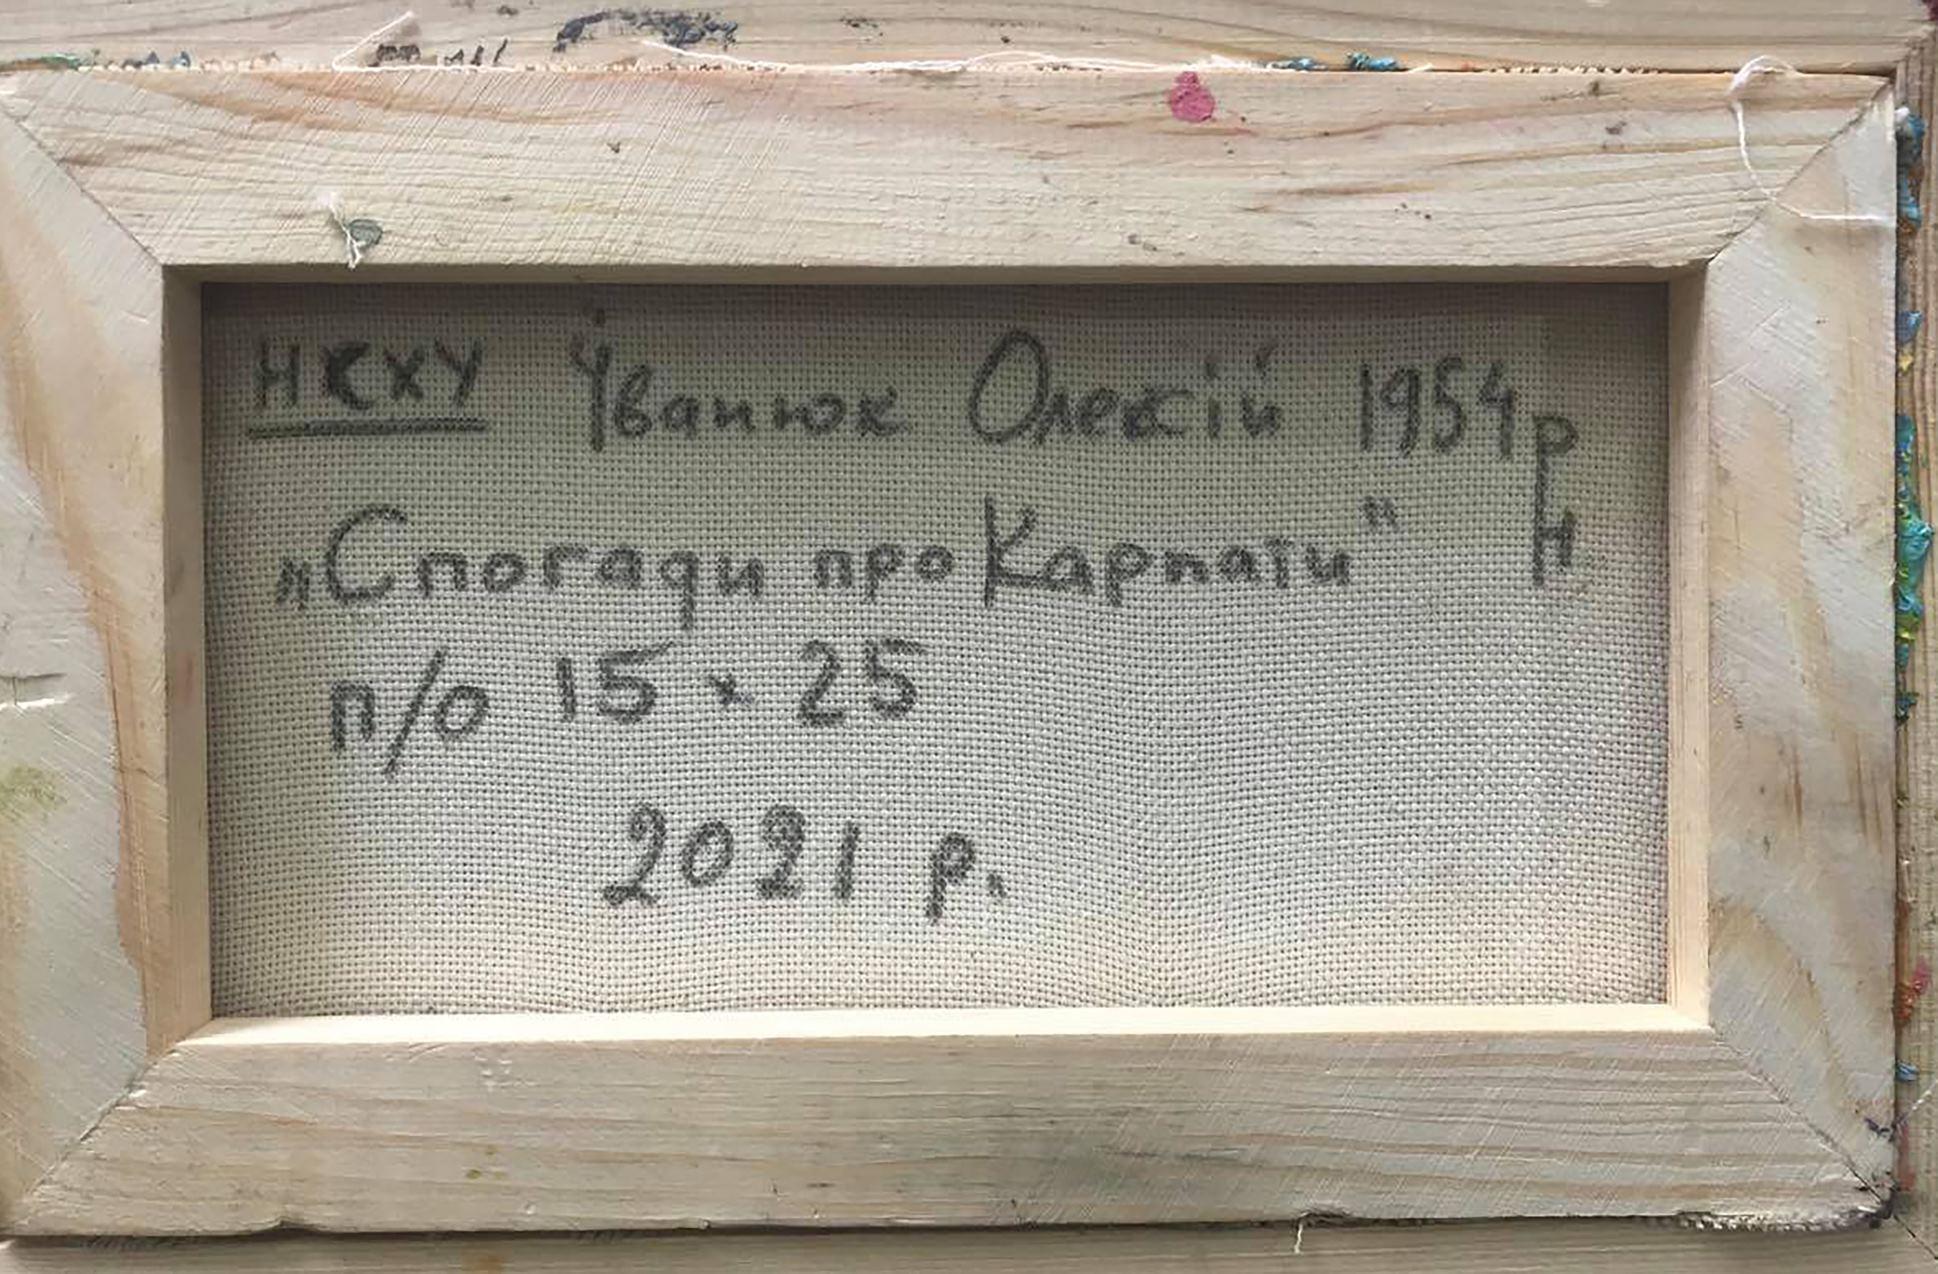 НСХУ Іванюк Олексій 1954 р
„Спогади про Карпати" н
п/о 15 x 25
2021 р.